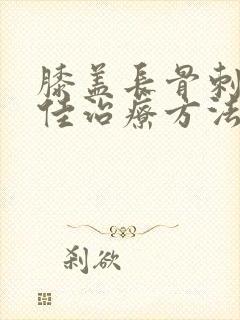 膝盖長骨刺
佳治療方法
刹欲